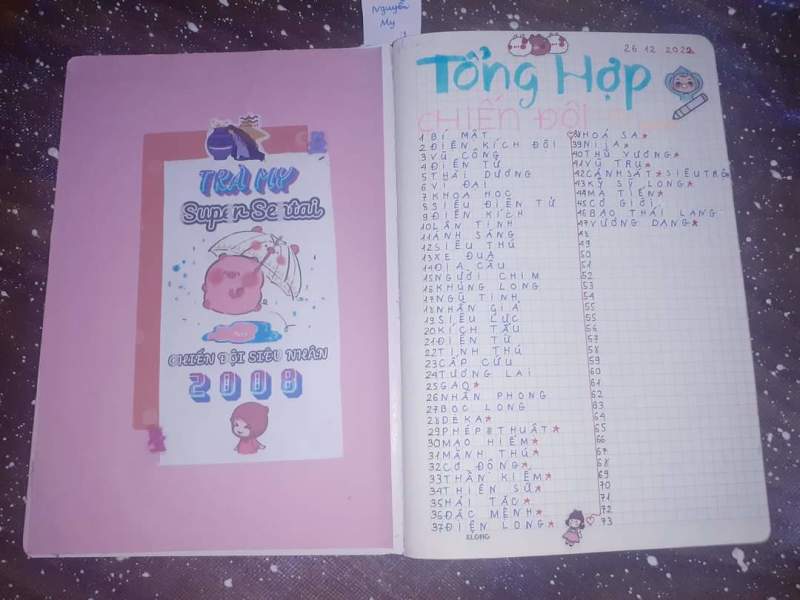 Nguyễn
My
TRÀ MY
Super Sentai
CHIẾN ĐỘI SIÊU NHÂN
2008
26 12 2022
Tổng Hợp
CHIẾN ĐỘI
1 BÍ MẬT
2 ĐIỆN KÍCH ĐỘI
3 VŨ CÔNG
4 ĐIỆN TỬ
5 THÁI DƯƠNG
6 VĨ ĐẠI
7 KHOA HỌC
8 SIÊU ĐIỆN TỬ
9 ĐIỆN KÍCH
10 LÂN TINH
11 ÁNH SÁNG
12 SIÊU THÚ
13 XE ĐUA
14 ĐỊA CẦU
15 NGƯỜI CHIM
16 KHỦNG LONG
17 NGŨ TINH
18 NHẪN GIẢ
19 SIÊU LỰC
20 KÍCH TẤU
21 ĐIỆN TỪ
22 TINH THÚ
23 CẤP CỨU
24 TƯƠNG LAI
25 GAO★
26 NHẪN PHONG
27 BỘC LONG
28 DEKA★
29 PHÉP THUẬT★
30 MẠO HIỂM★
31 MÃNH THÚ★
32 CƠ ĐỘNG★
33 THẦN KIẾM★
34 THIÊN SỨ★
35 HẢI TẶC★
36 ĐẶC MỆNH★
37 ĐIỆN LONG★
38 HOẢ SA★
39 NIJA★
40 THÚ VƯƠNG★
41 VŨ TRỤ★
42 CẢNH SÁT★ SIÊU TRỘM
43 KỴ SỸ LONG★
44 MA TIẾN★
45 CƠ GIỚI
46 BẠO THÁI LANG
47 VƯƠNG DẠNG★
48
49
50
51
52
53
54
55
55
56
57
58
59
60
61
62
63
64
65
66
67
68
69
70
71
72
73
KLONG